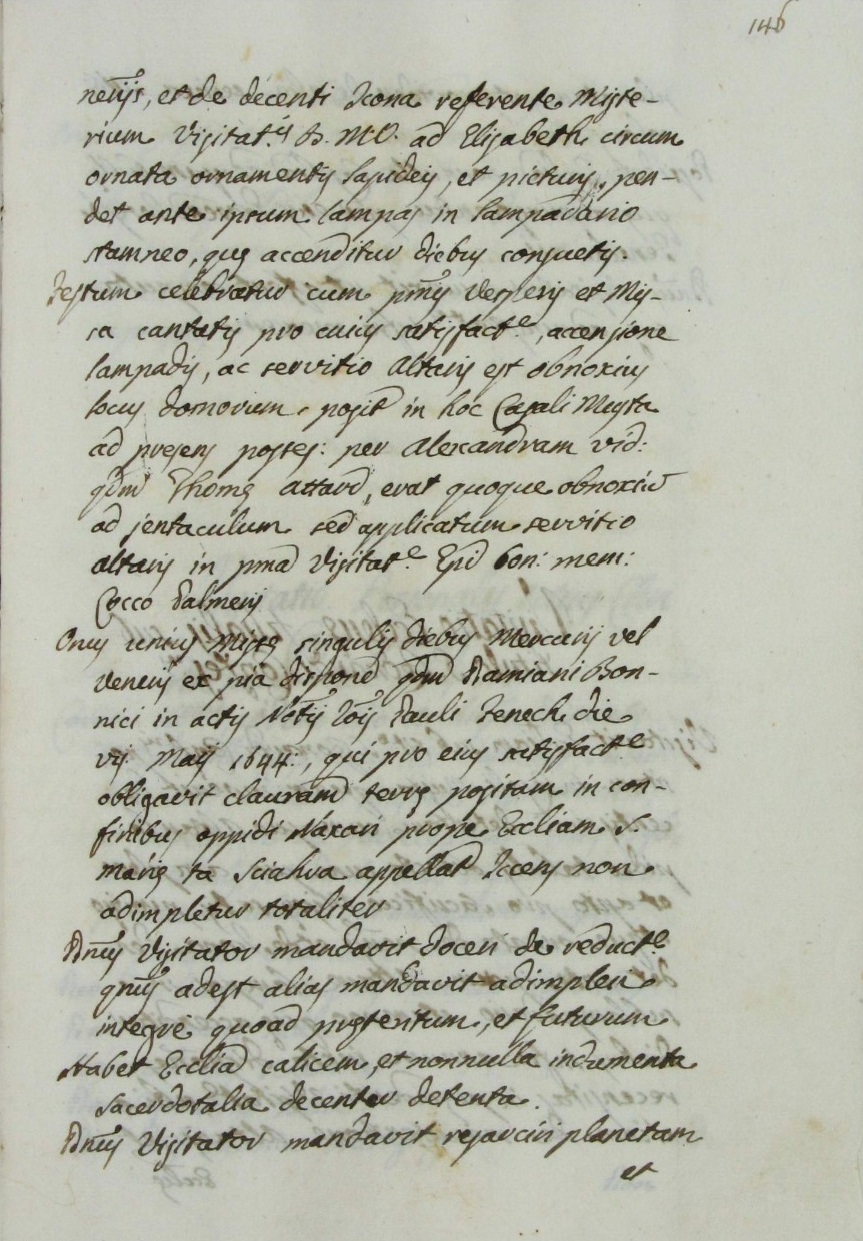 146
nerijs, et de decenti Icona referente Myste-
rium Visitat.is B. M. V. ad Elisabeth circum
ornata ornamentis lapideis, et picturis, pen-
det ante ipsum lampas in lampadario
stamneo, quę accenditur diebus consuetis.
Festum celebratur cum pmis Vesperis et Mis-
sa cantatis pro cuius satisfact.e, accensione
lampadis, ac servitio Altaris est obnoxius
locus domorum posit in hoc Casali Musta
ad presens posses: per Alexandram vid:
qdm Thomę Attard, erat quoque obnoxiũ
ad jentaculum sed applicatum servitio
altaris in pma Visitat.e Epi bon: mem:
Cocco Palmerij
Onus unius Missę singulis diebus Mercurij vel
Veneris ex pia dispone qdm Damiani Bon-
nici in actis Notrij Jois Pauli Fenech die
vij Maij 1644:, qui pro eius satisfact.e
obligavit clausuram terrę positam in con-
finibus oppidi Naxari prope Eccliam S.
Marię ta Sciahra appellat Icens non
adimpletur totaliter
Dnus Visitator mandavit doceri de reduct.e
qnus adest alias mandavit adimpleri
integrè quoad pręteritum, et futurum
Habet Ecclia calicem, et nonnulla indumenta
sacerdotalia decenter detenta.
Dnus Visitator mandavit resarciri planetam
et